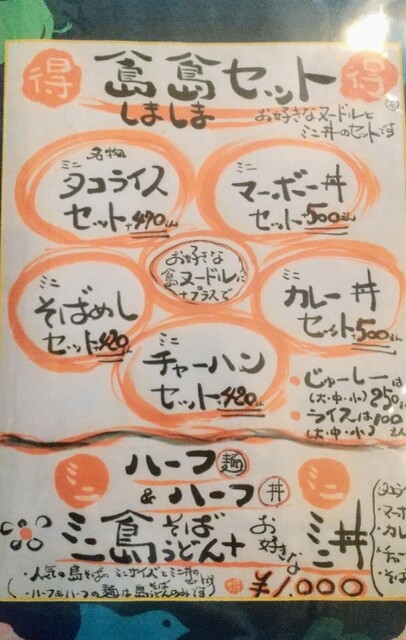 得 島島セット 得
しましま
お好きなヌードルと
ミニ丼のセットです
名物
ミニ
タコライス
セット +490
ミニ
マーボー丼
セット +500
お好きな
島ヌードルに
+プラスで
ミニ
そばめし
セット +420
ミニ
カレー丼
セット +500
ミニ
チャーハン
セット +420
・じゅーしーは
(大・中・小) 250
・ライスは100
(大・中・小)
ミニ ハーフ麺 ミニ
&ハーフ丼
ミニ島そば
うどん+
お好きな
ミニ丼
・人気の島そばの ミニサイズとミニ丼の
・ハーフ&ハーフの麺は島そばうどんのみです
¥1,000